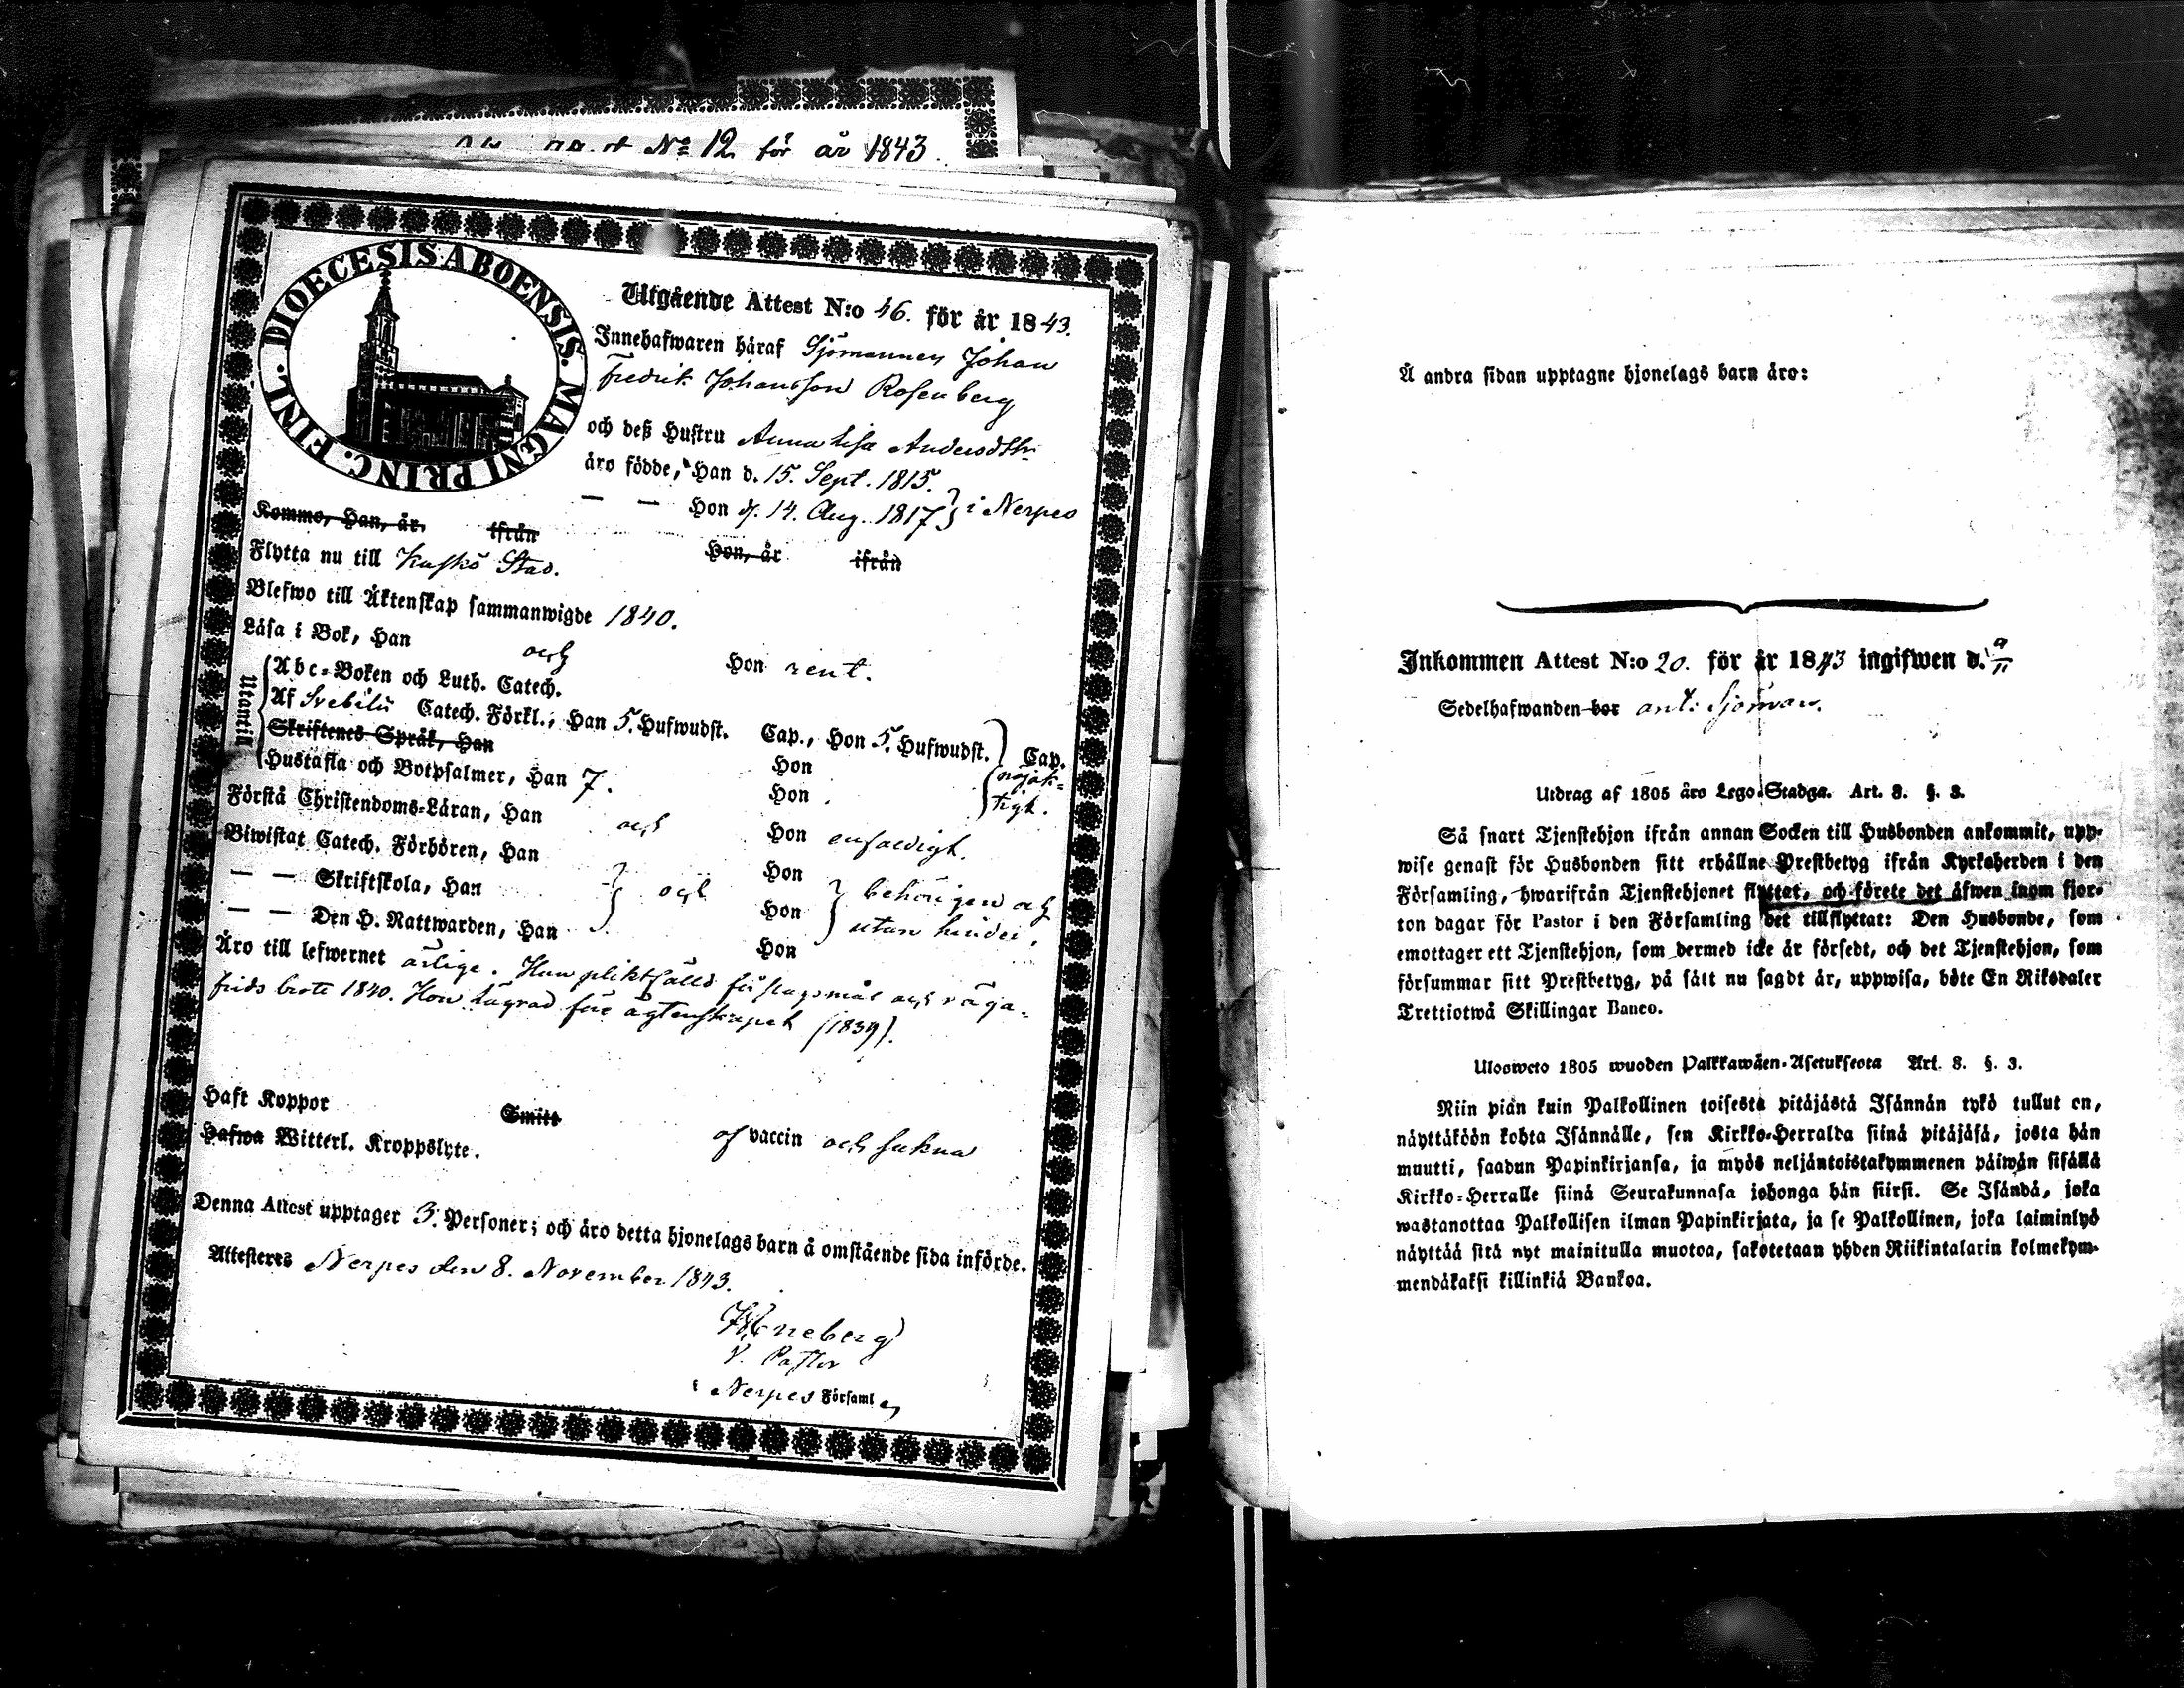 No 12 för år 1843
DIOECESIS ABOENSIS. MAGNI PRINC. FINL.
Utgående Attest N:o 46. för år 1843.
Innehafwaren häraf Sjömannen Johan
Fredrik Johansson Rosenberg
och deß Hustru Anna Lisa Andersdtr
äro födde, Han d. 15. Sept. 1815.
— — Hon d. 14. Aug. 1817 } i Nerpes
Kommo, Han, år. ifrån Hon, år ifrån
Flytta nu till Kaskö Stad.
Blefwo till Äktenskap sammanwigde 1840.
Läsa i Bok, Han och Hon rent.
Utantill
Abc-Boken och Luth. Catech.
Af Svebilii Catech. Förkl., Han 5. Hufwudst. Cap., Hon 5. Hufwudst. Cap.
Skriftenes Språk, Han Hon
Hustafla och Botpsalmer, Han 7. Hon nöjak-
tigt.
Förstå Christendoms-Läran, Han och Hon enfaldigt.
Biwistat Catech. Förhören, Han Hon
— — Skriftskola, Han och Hon behörigen och
— — Den H. Nattwarden, Han Hon utan hinder.
Äro till lefwernet ärlige. Han pliktfälld för slagsmål och väga-
frids brott 1840. Hon lägrad för ägtenskapet (1839).
Haft Koppor Smitt af vaccin och sakna
Hafwa Witterl. Kroppslyte.
Denna Attest upptager 3. Personer; och äro detta hjonelags barn å omstående sida införde.
Attesteras Nerpes den 8. November 1843.
V. Pastor
i Nerpes Församl
Å andra sidan upptagne hjonelags barn äro:
Inkommen Attest N:o 20. för år 1843 ingifwen d. 9/11
Sedelhafwanden bor ant. Sjöman.
Utdrag af 1805 års Lego-Stadga. Art. 8. §. 3.
Så snart Tjenstehjon ifrån annan Socken till Husbonden ankommit, upp-
wise genast för Husbonden sitt erhållne Prestbetyg ifrån Kyrkoherden i den
Församling, hwarifrån Tjenstehjonet flyttat, och förete det äfwen inom fjor-
ton dagar för Pastor i den Församling det tillflyttat: Den Husbonde, som
emottager ett Tjenstehjon, som dermed icke är försedt, och det Tjenstehjon, som
försummar sitt Prestbetyg, på sätt nu sagdt är, uppwisa, böte En Riksdaler
Trettiotwå Skillingar Banco.
Ulosweto 1805 wuoden Palkkawäen-Asetuksesta Art. 8. §. 3.
Niin pian kuin Palkollinen toisesta pitäjästä Isännän tykö tullut on,
näyttäköön kohta Isännälle, sen Kirkko-Herralda siinä pitäjäsä, josta hän
muutti, saadun Papinkirjansa, ja myös neljäntoistakymmenen päiwän sisällä
Kirkko-Herralle siinä Seurakunnasa johonga hän siirsi. Se Isändä, joka
wastanottaa Palkollisen ilman Papinkirjata, ja se Palkollinen, joka laiminlyö
näyttää sitä nyt mainitulla muotoa, sakotetaan yhden Riikintalarin kolmekym-
mendäkaksi killinkiä Bankoa.